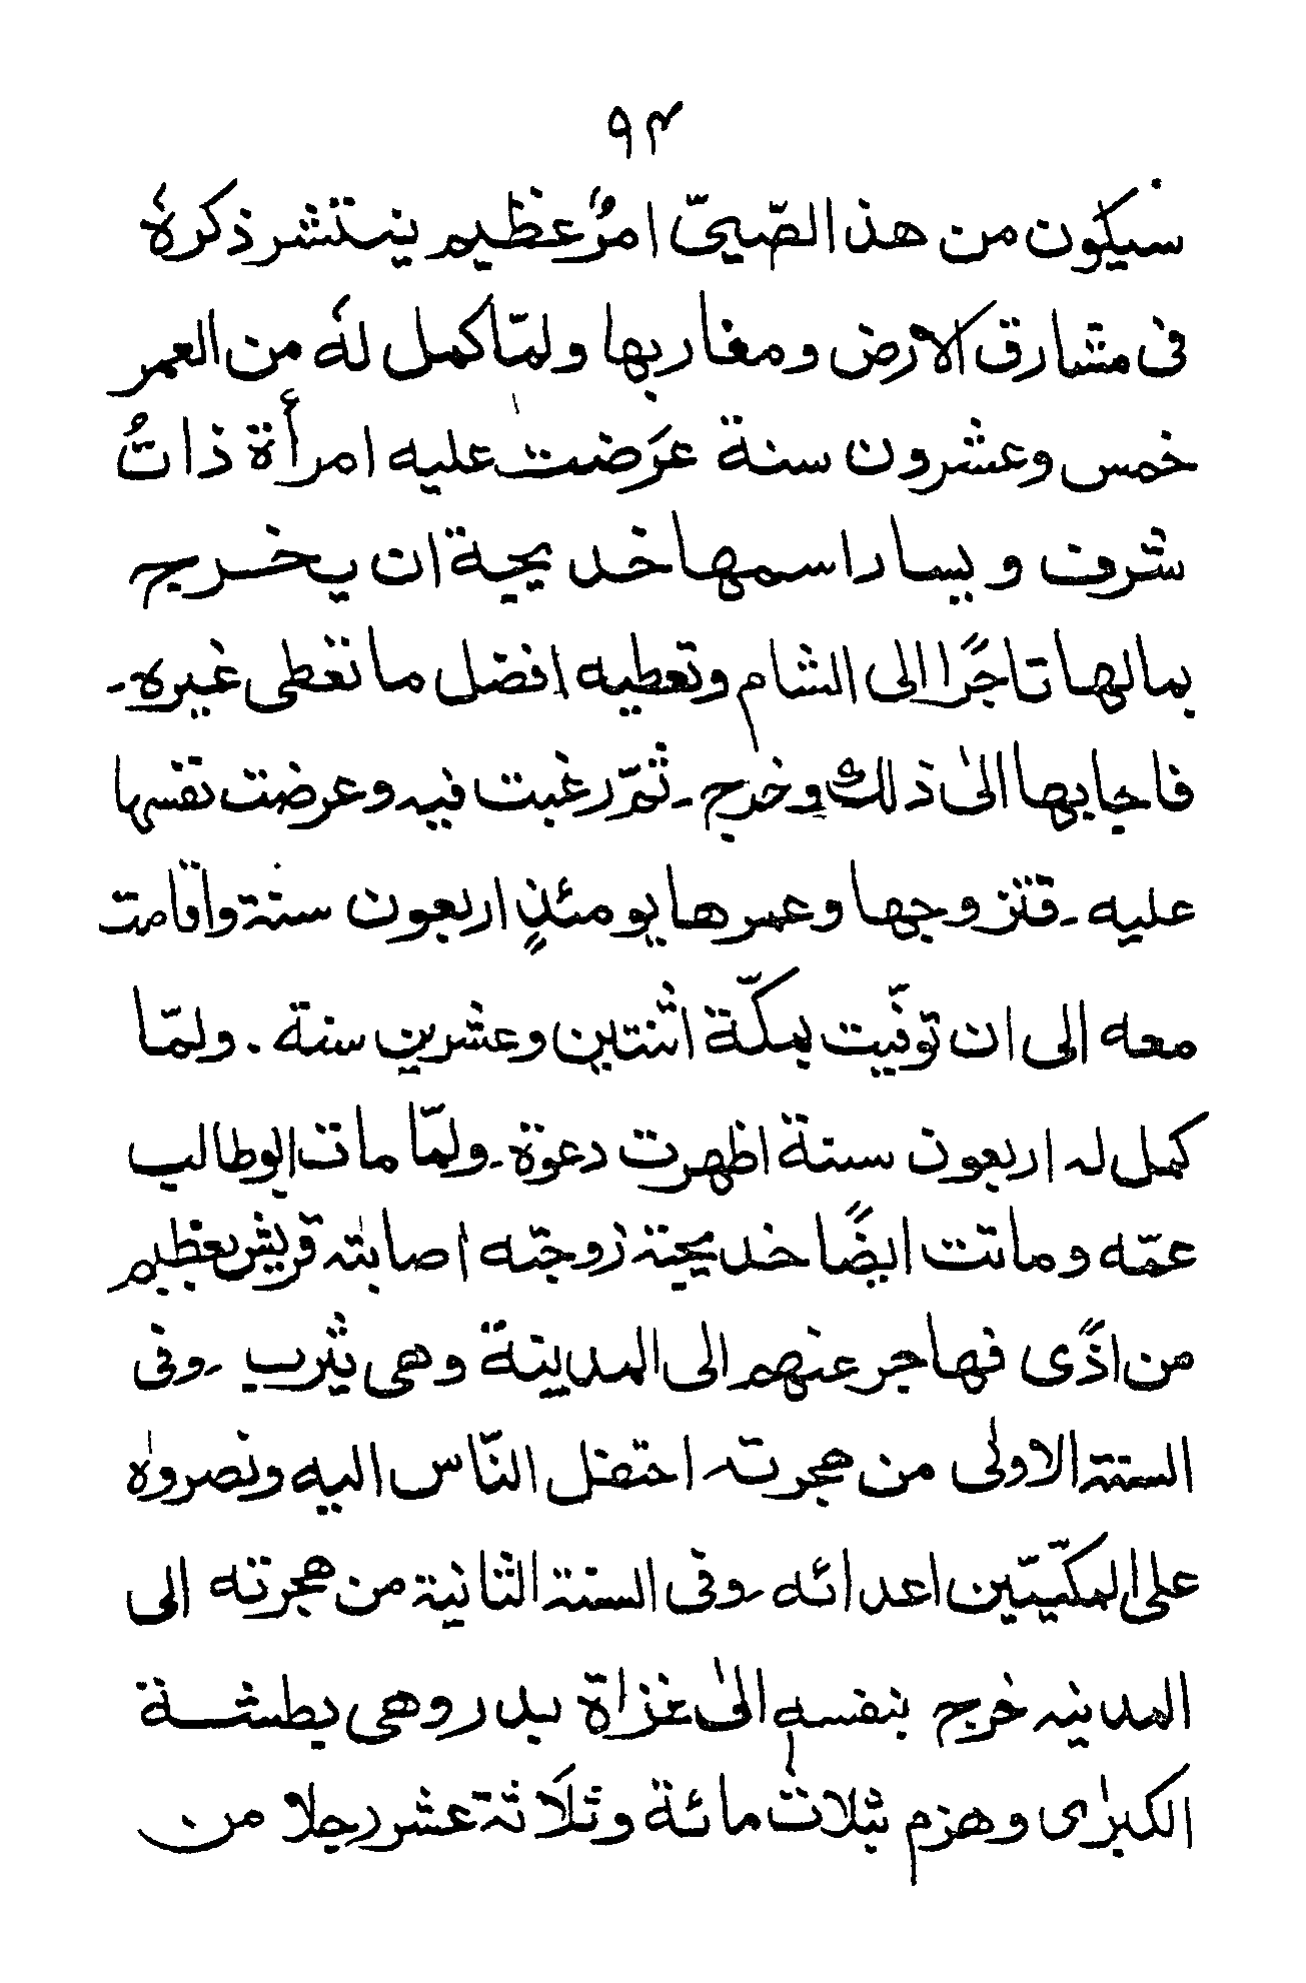 ۹۴
سيكون من هذا الصّبيّ امرٌ عظيم ينتشر ذكرهٗ
فى مشارق الارض ومغاربها ولمّا كمل لهٗ من العمر
خمس وعشرون سنة عرَضت عليه امرأة ذاتُ
شرف ويسار اسمها خديجة ان يخرج
بمالها تاجرًا الى الشام وتعطيه افضل ما تعطى غيره۔
فاجابها الىٰ ذلك وخرج۔ ثمّ رغبت فيه وعرضت نفسها
عليه۔ فتزوجها وعمرها يومئذٍ اربعون سنة واقامت
معه الى ان توفّيت بمكّة اثنتين وعشرين سنة۔ ولمّا
كمل له اربعون سنة اظهرت دعوة۔ ولمّا مات ابوطالب
عمّه وماتت ايضًا خديجة زوجته اصابته قريش بعظيم
من اذًى فهاجر عنهم الى المدينة وهى يثرب۔ وفى
السنة الاولٰى من هجرته احتفل النّاس اليه ونصروه
على المكّيّين اعدائه۔ وفى السنة الثانية من هجرته الى
المدينه خرج بنفسه الىٰ غزاة بدر وهى بطشة
الكبرٰى وهزم بثلاث مائة وثلَاثة عشر رجلا من